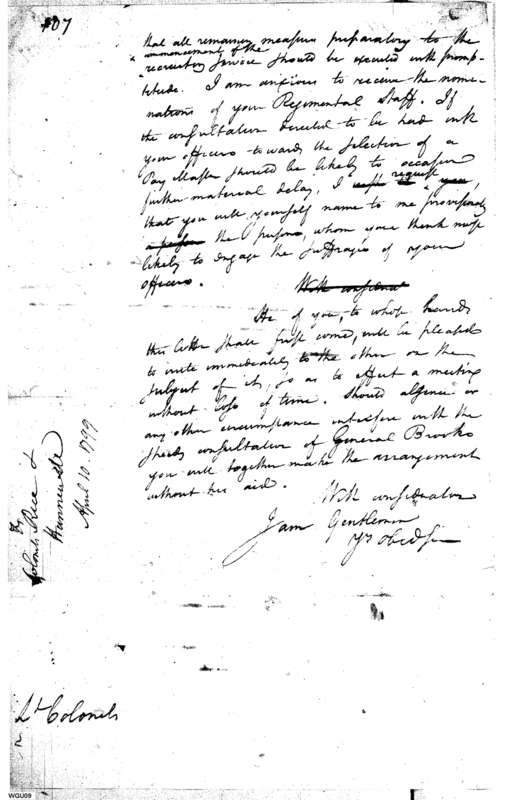 107
that all remaining measures preparatory to the
commencement of the
recruiting service should be executed with promp-
titude. I am anxious to receive the nomi-
nations of your Regimental Staff. If
the consultation directed to be had with
your officers towards the selection of a
Pay Master should be likely to occasion
further material delay, I request you,
that you will yourself name to me provisionally
a person the persons, whom you think most
likely to engage the suffrages of your
officers.
With considerat
He of you, to whose hands
this letter shall first come, will be pleased
to write immediately to the other on the
subject of it, so as to effect a meeting
without loss of time. Should absence or
any other circumstance interfere with the
speedy consultation of General Brooks
you will together make the arrangement
without his aid.
With consideration
I am Gentlemen
Yr Obed Ser
Colonels Rice &
Hunnewelle
April 10. 1799
Lt Colonels
WGU09